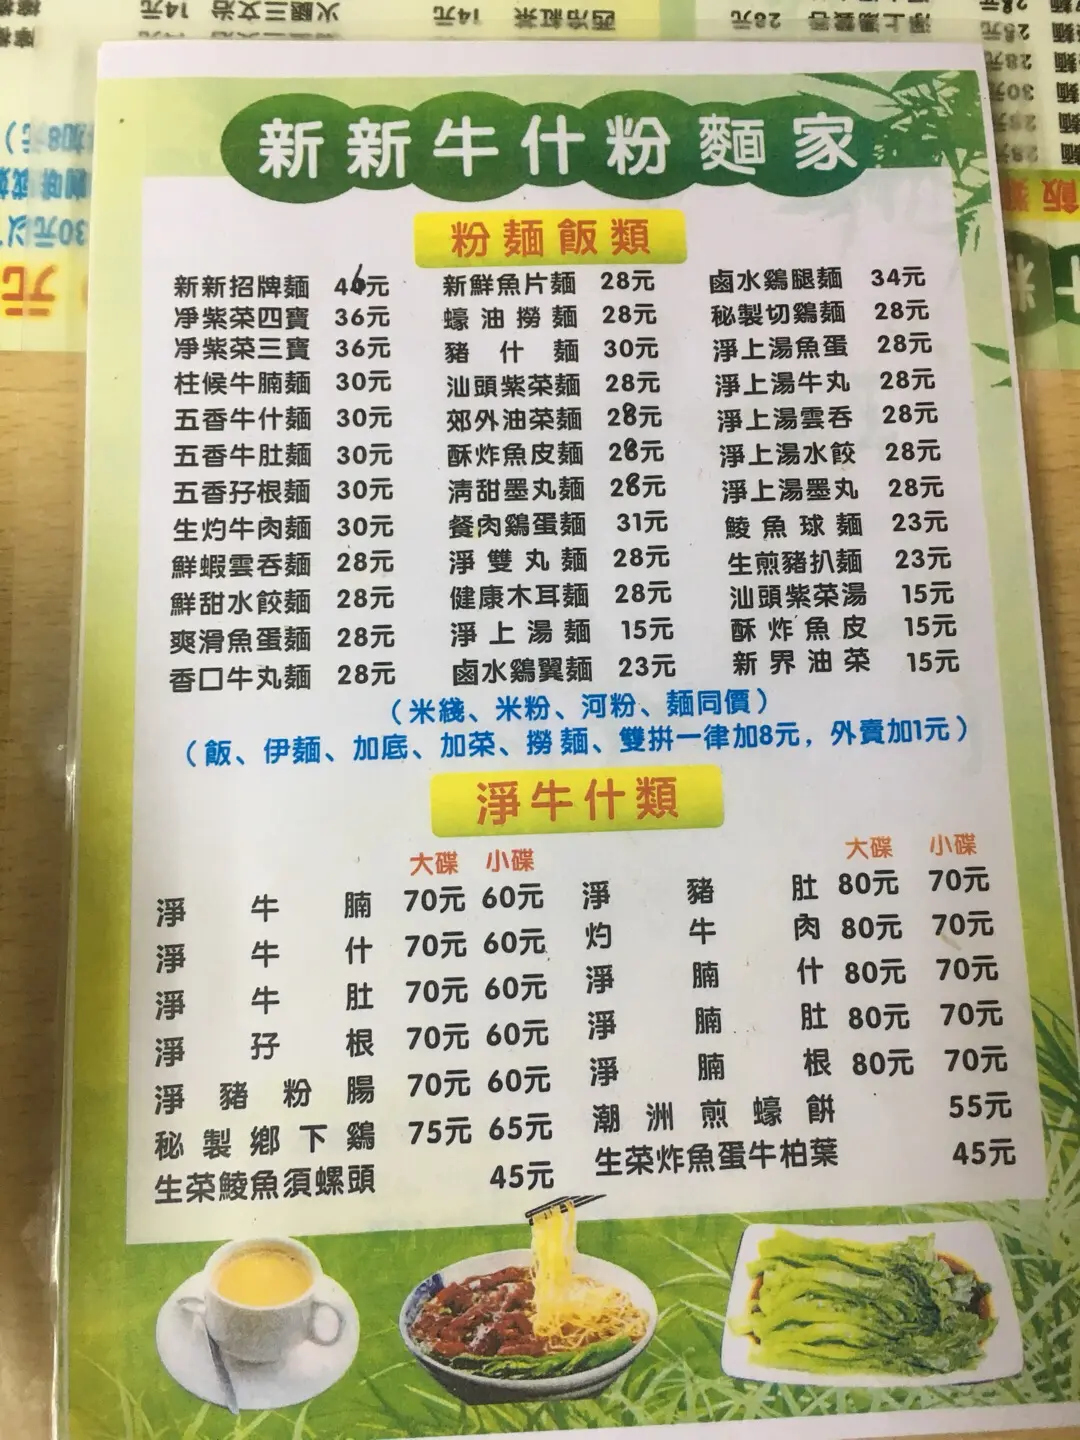 新新牛什粉麵家
粉麵飯類
新新招牌麵 46元 新鮮魚片麵 28元 鹵水鷄腿麵 34元
凈紫菜四寶 36元 蠔油撈麵 28元 秘製切鷄麵 28元
凈紫菜三寶 36元 豬什麵 30元 淨上湯魚蛋 28元
柱候牛腩麵 30元 汕頭紫菜麵 28元 淨上湯牛丸 28元
五香牛什麵 30元 郊外油菜麵 28元 淨上湯雲吞 28元
五香牛肚麵 30元 酥炸魚皮麵 28元 淨上湯水餃 28元
五香孖根麵 30元 清甜墨丸麵 28元 淨上湯墨丸 28元
生灼牛肉麵 30元 餐肉鷄蛋麵 31元 鯪魚球麵 23元
鮮蝦雲吞麵 28元 淨雙丸麵 28元 生煎豬扒麵 23元
鮮甜水餃麵 28元 健康木耳麵 28元 汕頭紫菜湯 15元
爽滑魚蛋麵 28元 淨上湯麵 15元 酥炸魚皮 15元
香口牛丸麵 28元 鹵水鷄翼麵 23元 新界油菜 15元
（米綫、米粉、河粉、麵同價）
（飯、伊麵、加底、加菜、撈麵、雙拼一律加8元，外賣加1元）
淨牛什類
大碟 小碟 大碟 小碟
淨牛腩 70元 60元 淨豬肚 80元 70元
淨牛什 70元 60元 灼牛肉 80元 70元
淨牛肚 70元 60元 淨腩什 80元 70元
淨孖根 70元 60元 淨腩肚 80元 70元
淨豬粉腸 70元 60元 淨腩根 80元 70元
秘製鄉下鷄 75元 65元 潮洲煎蠔餅 55元
生菜鯪魚須螺頭 45元 生菜炸魚蛋牛柏葉 45元